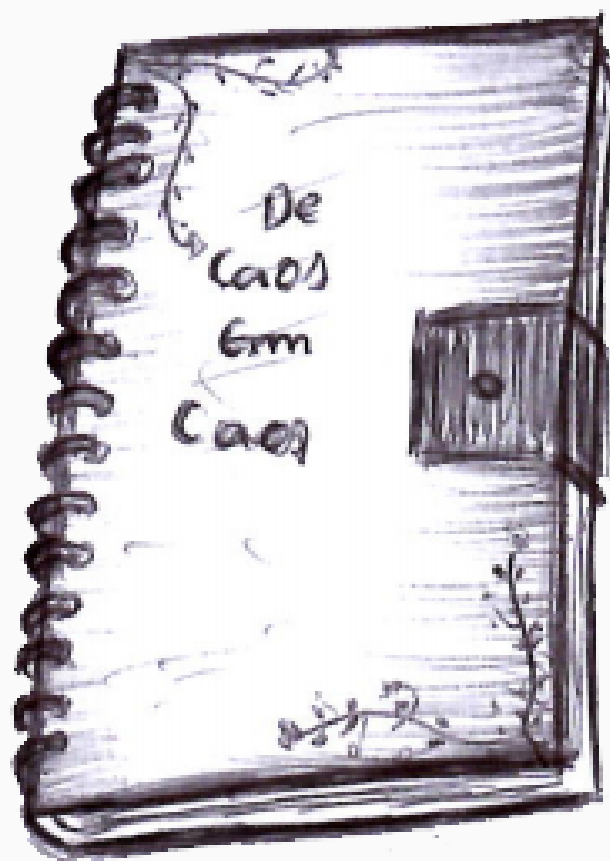 De
Caos
Em
Caos